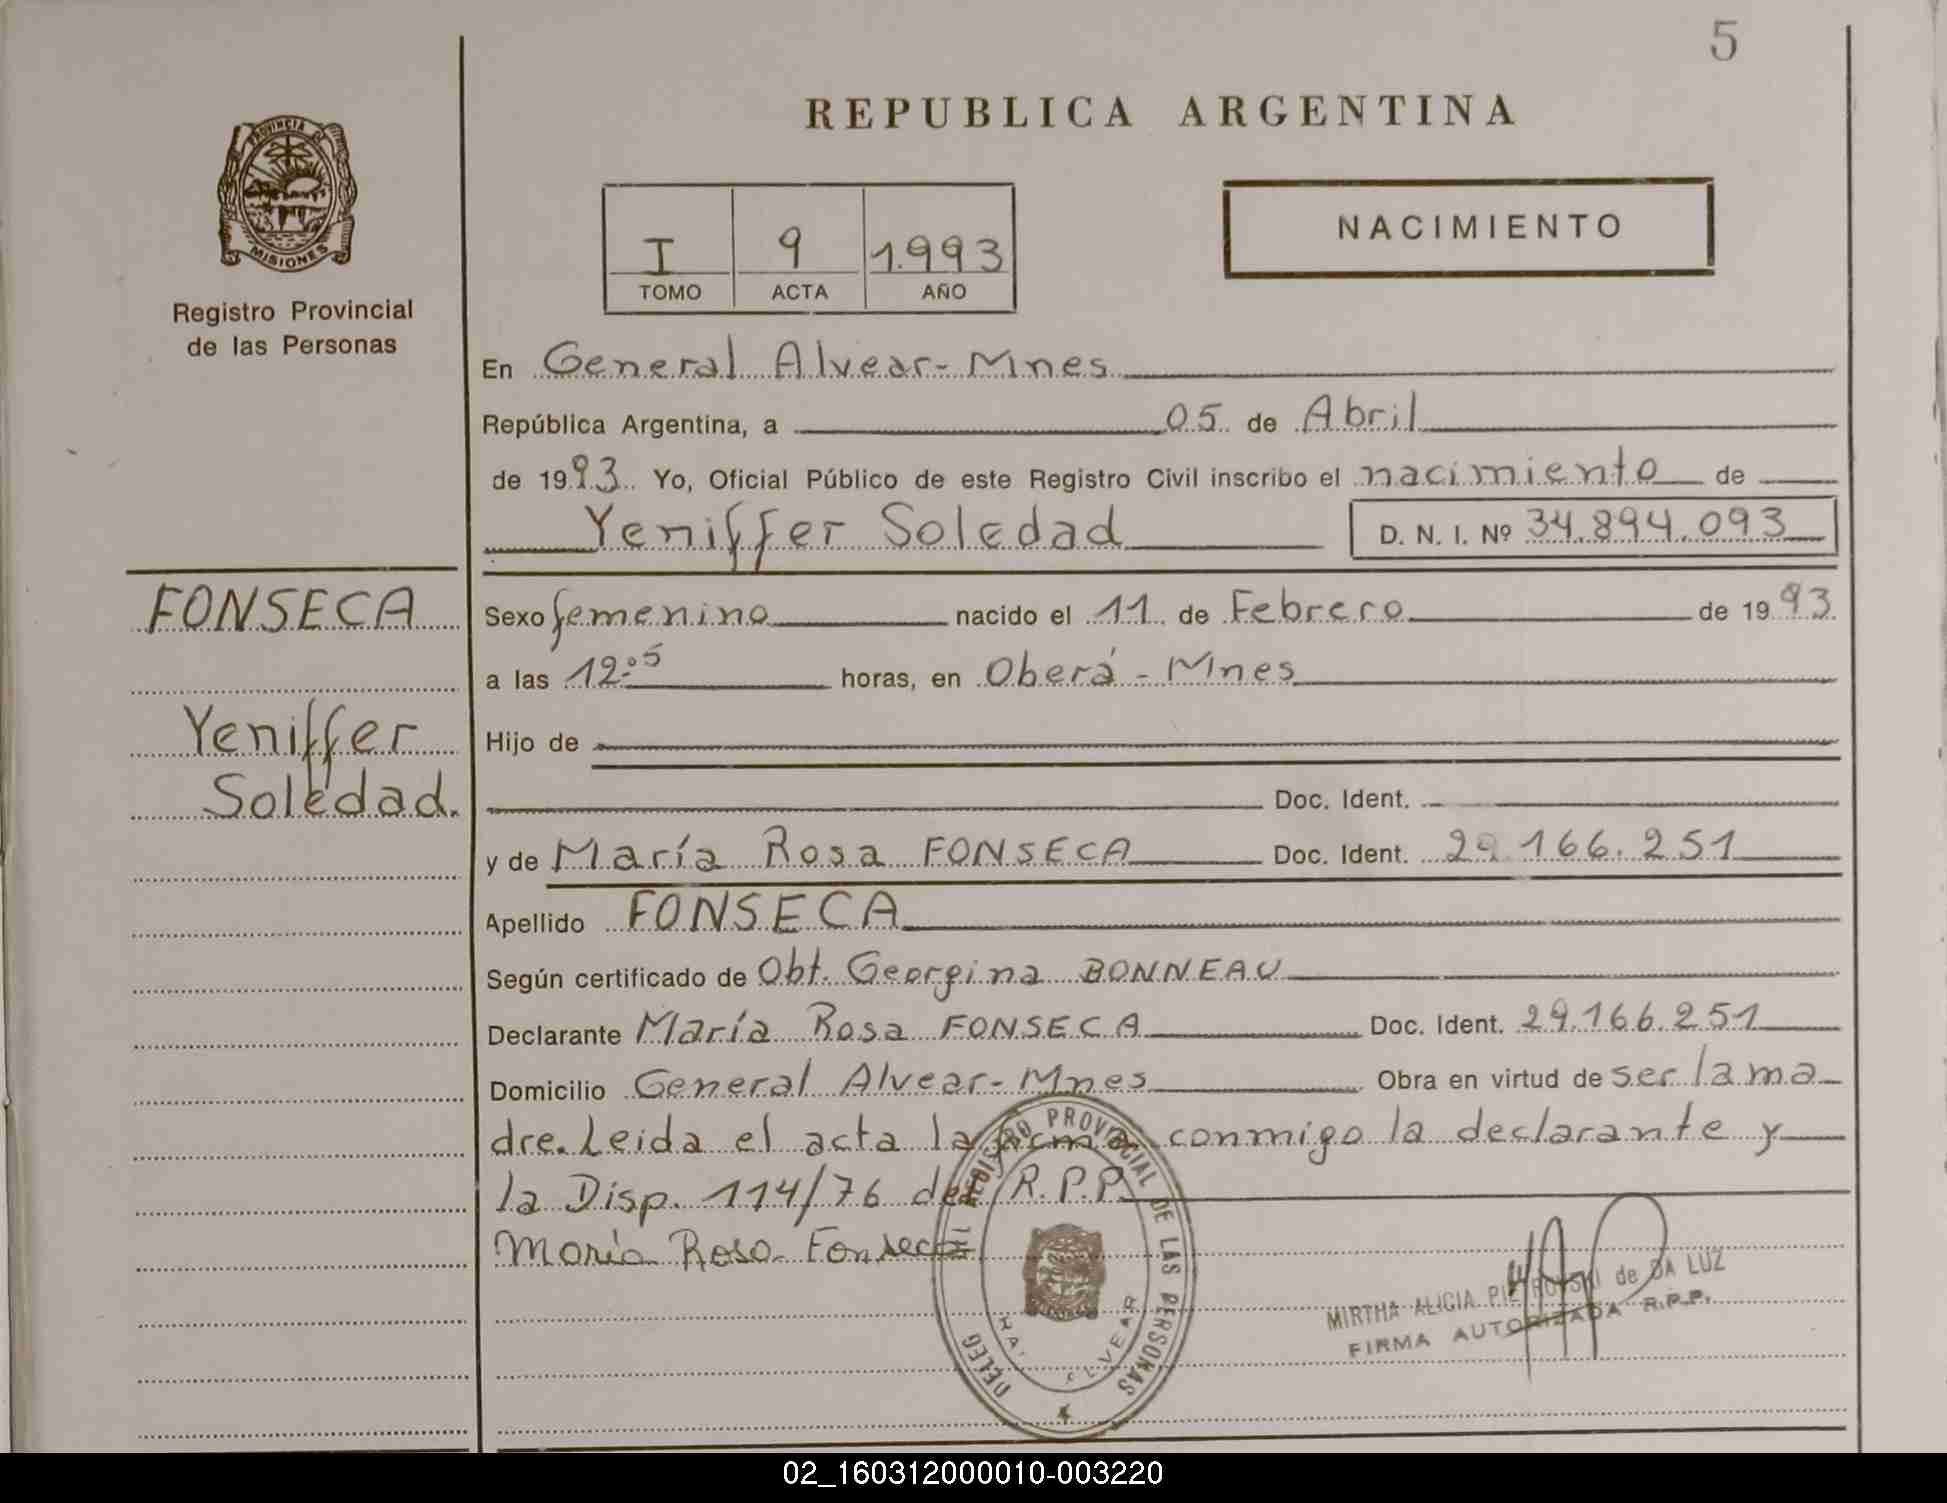 5
REPUBLICA ARGENTINA
PROVINCIA
MISIONES
Registro Provincial
de las Personas
I 9 1.993
TOMO ACTA AÑO
NACIMIENTO
En General Alvear-Mnes
República Argentina, a 05 de Abril
de 1993 Yo, Oficial Público de este Registro Civil inscribo el nacimiento de
Yeniffer Soledad D. N. I. Nº 34.894.093
FONSECA
Yeniffer
Soledad.
Sexo femenino nacido el 11 de Febrero de 1993
a las 12:05 horas, en Oberá - Mnes
Hijo de
Doc. Ident.
y de María Rosa FONSECA Doc. Ident. 29.166.251
Apellido FONSECA
Según certificado de Obt. Georgina BONNEAU
Declarante María Rosa FONSECA Doc. Ident. 29.166.251
Domicilio General Alvear-Mnes Obra en virtud de ser la ma
dre. Leida el acta la conmigo la declarante y
la Disp. 114/76 del R.P.P.
María Rosa Fonseca
REGISTRO PROVINCIAL DE LAS PERSONAS
DELEG
ALVEAR
MIRTHA ALICIA PIETROWSKI de DA LUZ
FIRMA AUTORIZADA R.P.P.
02_160312000010-003220